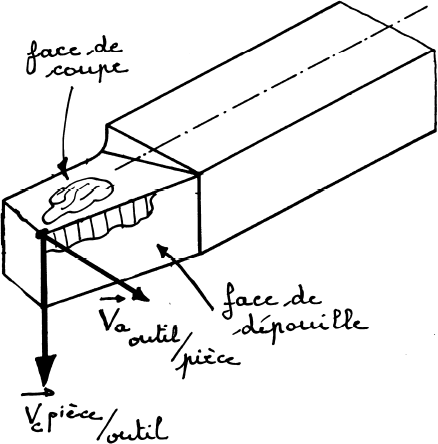 face de
coupe
face de
dépouille
Va outil/pièce
Vc pièce/outil